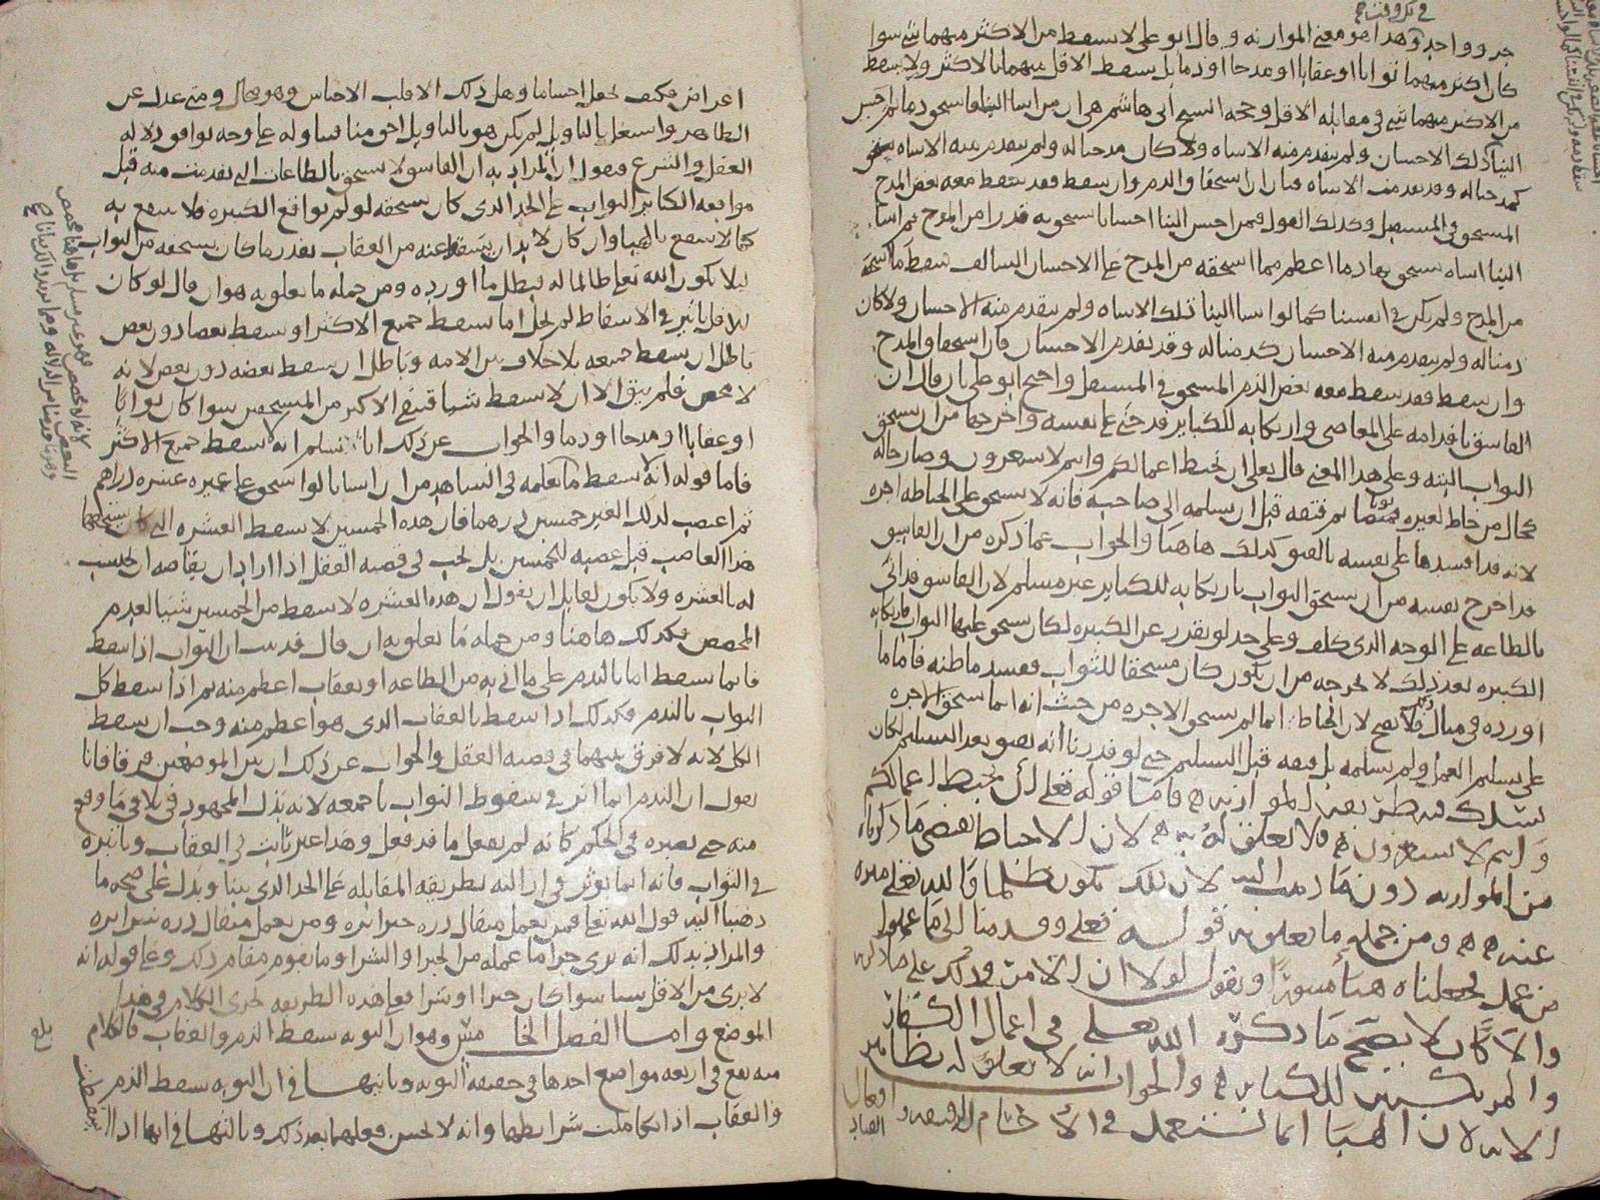 في كل وقت
جزو واحد وهذا هو معنى الموازنه وقال ابو علي لا يسقط من الاكثر منهما شي سوا
كان اكثر منهما ثوابا او عقابا او مدحا او ذما بل يسقط الاقل منهما بالاكثر ولا يسقط
من الاكثر منهما شي في مقابله الاقل وحجه الشيخ ابي هاشم هي ان من اسا الينا فاستحق ذما ثم احسن
الينا ذلك الاحسان ولم يتقدم منه الاساه ولا كان مدحنا له ولم يتقدم منه الاساه
كمدحنا له وقد تقدمت الاساه فبان ان استحقاق الذم وان سقط فقد سقط معه بعض المدح
المستحق في المستقبل وكذلك القول فيمن احسن الينا احسانا يستحق به قدرا من المدح ثم اسا
الينا اساه يستحق بها ذما اعظم مما استحقه من المدح على الاحسان السالف سقط ما استحقه
من المدح ولم يكن في انفسنا كما لو اسا الينا تلك الاساه ولم يتقدم منه الاحسان ولا كان
ذمنا له ولم يتقدم منه الاحسان كذمنا له وقد تقدم الاحسان فان استحقاق المدح
وان سقط فقد سقط معه بعض الذم المستحق في المستقبل واحتج ابو علي بان قال ان
الفاسق باقدامه على المعاصي وارتكابه للكباير قد جنى على نفسه واخرجها من ان يستحق
الثواب البته وعلى هذا المعنى قال تعالى ان تحبط اعمالكم وانتم لا تشعرون وصار حاله
كحال من خاط لغيره ثوبا ثم فتقه قبل ان يسلمه الى صاحبه فانه لا يستحق على الخياطه اجره
لانه قد افسدها على نفسه بالفتق كذلك هاهنا والجواب عما ذكره من ان الفاسق
قد اخرج نفسه من ان يستحق الثواب بارتكابه للكباير غير مسلم لان الفاسق قد اتى
بالطاعه على الوجه الذي كلف وعلى حد لو تفرد عن الكبيره لكان يستحق عليها الثواب فارتكابه
الكبيره بعد ذلك لا يخرجه من ان يكون كان مستحقا للثواب ففسد ما ظنه فاما ما
اورده في مثال فلا يصح لان الخياط انما لم يستحق الاجره من حيث انه انما يستحق الاجره
على تسليم العمل ولم يسلمه بل فتقه قبل التسليم حتى لو قدرنا انه فتق بعد التسليم لكان
فاما قوله تعلى ان تحبط اعمالكم
وانتم لا تشعرون فلا تعلق له به لان الاحباط يقتضي ما ذكرناه
من الموازنه دون ما ذهب اليه لان ذلك يكون ظلما والله تعلى منزه
عنه ومن جمله ما يتعلق به قوله تعلى وقدمنا الى ما عملوا
من عمل فجعلناه هباء منثورا ويقول لولا ان الامر في ذلك على ما ذكرته
والا كان لا يصح ما ذكره الله تعلى في اعمال الكفار
والمرتكبين للكباير والجواب انه لا تعلق له بظاهر
الايه لان الهبا انما يستعمل في الاجسام الرقيقه وافعال العباد
اعراض فكيف تجعل اجساما وهل ذلك الا قلب الاجناس وهو محال ومتى عدل عن
الظاهر واشتغل بالتاويل لم يكن هو بالتاويل احق منا فنتاوله على وجه يوافق دلاله
العقل والشرع فنقول ان المراد به ان الفاسق لا يستحق بالطاعات التي تقدمت منه قبل
مواقعه الكباير الثواب على الحد الذي كان يستحقه لو لم يواقع الكبيره فلا ينتفع به
كما لا ينتفع بالهبا وان كان لا بد ان يسقط عنه من العقاب بقدر ما كان يستحقه من الثواب
ليلا يكون الله تعالى ظالما له فبطل ما اورده ومن جمله ما يتعلق به هو ان قال لو كان
للاقل تاثير في الاسقاط لم يخل اما يسقط جميع الاكثر او يسقط بعضا دون بعض
باطل ان يسقط جميعه بلا خلاف بين الامه وباطل ان يسقط بعضه دون بعض لانه
لا مخصص فلم يبق الا ان لا يسقط شيا فيبقى الاكثر من المستحقين سوا كان ثوابا
او عقابا او مدحا او ذما والجواب عن ذلك انا نسلم انه لا يسقط جميع الاكثر
فاما قوله انه لا يسقط ما نعلمه في الشاهد من ان انسانا لو استحق على غيره عشره دراهم
ثم اغتصب لذلك الغير خمسين درهما فان هذه الخمسين لا تسقط العشره التي كان يستحقها
هذا الغاصب قبل غصبه للخمسين بل يجب في قضيه العقل اذا اراد ان يقاصه ان يحتسب
له بالعشره ولا يكون لقايل ان يقول ان هذه العشره لا تسقط من الخمسين شيا لعدم
المخصص فكذلك هاهنا ومن جمله ما يتعلق به ان قال قد ثبت ان الثواب اذا سقط
فانما يسقط اما بالندم على ما اتى به من الطاعه او بعقاب اعظم منه ثم اذا سقط كل
الثواب بالندم فكذلك اذا سقط بالعقاب الذي هو اعظم منه وجب ان يسقط
الكل لانه لا فرق بينهما في قضيه العقل والجواب عن ذلك ان بين الموضعين فرقا فانا
نقول ان الندم انما اثر في سقوط الثواب باجمعه لانه بذل المجهود في تلافي ما وقع
منه حتى يصيره في الحكم كانه لم يفعل ما قد فعل وهذا غير ثابت في العقاب وتاثيره
في الثواب فانه انما يوثر في ازالته بطريقه المقابله على الحد الذي بينا ويدل على صحه ما
ذهبنا اليه قول الله تعالى فمن يعمل مثقال ذره خيرا يره ومن يعمل مثقال ذره شرا يره
والمراد بذلك انه يرى جزا ما عمله من الخير او الشر او ما يقوم مقام ذلك وعلى قوله انه
لا يرى من الاقل شيا سوا كان خيرا او شرا فعلى هذه الطريقه يجري الكلام في هذا
الموضع واما الفصل الخامس وهو ان التوبه تسقط الذم والعقاب فالكلام
منه يقع في اربعه مواضع احدها في حقيقه التوبه وثانيها في ان التوبه تسقط الذم
والعقاب اذا تكاملت شرايطها وانه لا يحسن فعلهما بعد ذلك وثالثها في انها اذا
بلغ